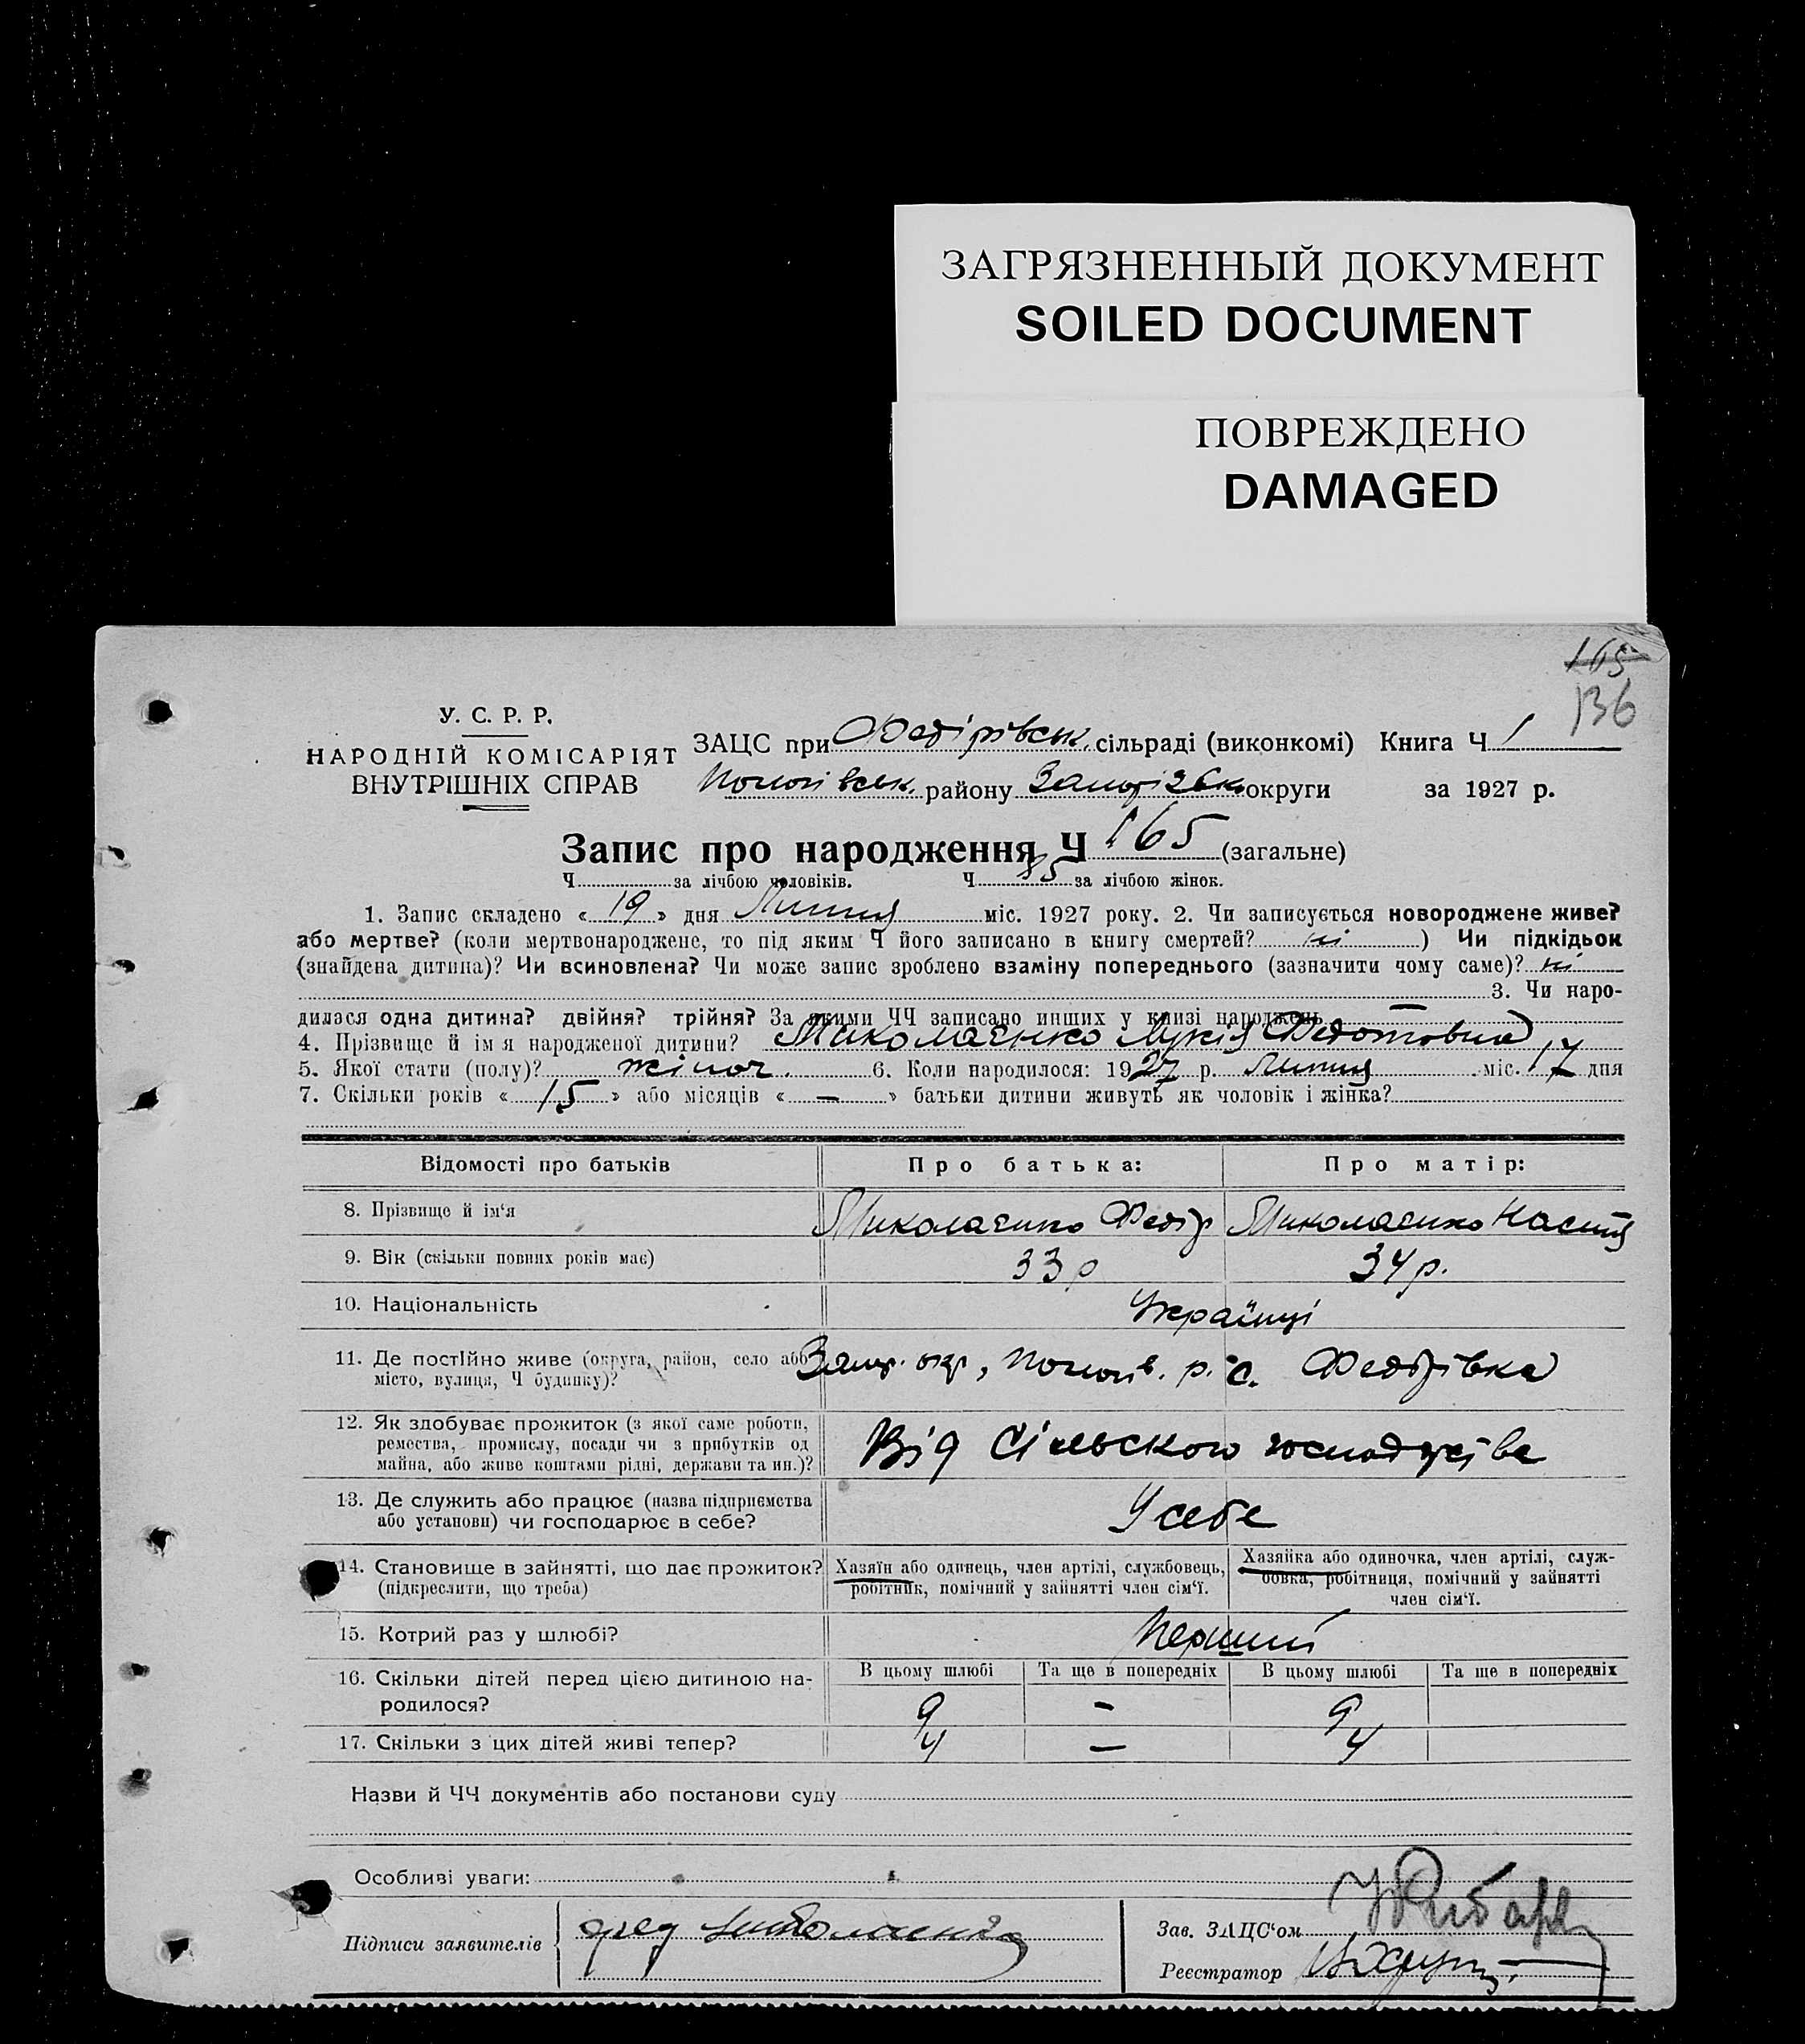 ЗАГРЯЗНЕННЫЙ ДОКУМЕНТ
SOILED DOCUMENT
ПОВРЕЖДЕНО
DAMAGED
165
136
У. С. Р. Р.
НАРОДНІЙ КОМІСАРІЯТ
ВНУТРІШНІХ СПРАВ
ЗАЦС при Федірівськ. сільраді (виконкомі) Книга Ч 1
Пологівськ. району Запорізьк. округи за 1927 р.
Запис про народження Ч 165 (загальне)
Ч за лічбою чоловіків. Ч 85 за лічбою жінок.
1. Запис складено « 19 » дня Липня міс. 1927 року. 2. Чи записується новороджене живе?
або мертве? (коли мертвонароджене, то під яким Ч його записано в книгу смертей? ні ) Чи підкідьок
(знайдена дитина)? Чи всиновлена? Чи може запис зроблено взаміну попереднього (зазначити чому саме)? ні
3. Чи наро-
дилася одна дитина? двійня? трійня? За якими ЧЧ записано инших у книзі народжень
4. Прізвище й ім я народженої дитини? Миколаєнко Лукія Федотовна
5. Якої стати (полу)? жіноч. 6. Коли народилося: 1927 р. Липня міс. 17 дня
7. Скільки років « 15 » або місяців « — » батьки дитини живуть як чоловік і жінка?
Відомості про батьків Про батька: Про матір:
8. Прізвище й ім‘я Миколаєнко Федір Миколаєнко Настя
9. Вік (скільки повних років має) 33 р 34 р.
10. Національність Українці
11. Де постійно живе (округа, район, село або Запор. окр, Пологів. р. с. Федорівка
місто, вулиця, Ч будинку)?
12. Як здобуває прожиток (з якої саме роботи,
ремества, промислу, посади чи з прибутків од Від Сільського господарства
майна, або живе коштами рідні, держави та ин.)?
13. Де служить або працює (назва підприємства
або установи) чи господарює в себе? У себе
14. Становище в зайнятті, що дає прожиток? Хазяїн або одинець, член артілі, службовець, Хазяйка або одиночка, член артілі, служ-
(підкреслити, що треба) робітник, помічний у зайнятті член сім‘ї. бовка, робітниця, помічний у зайнятті
член сім‘ї.
15. Котрий раз у шлюбі? Перший
16. Скільки дітей перед цією дитиною на- В цьому шлюбі Та ще в попередніх В цьому шлюбі Та ще в попередніх
родилося? 9 – 9
17. Скільки з цих дітей живі тепер? 4 — 4
Назви й ЧЧ документів або постанови суду
Особливі уваги:
Підписи заявителів
Зав. ЗАЦС‘ом
Реєстратор